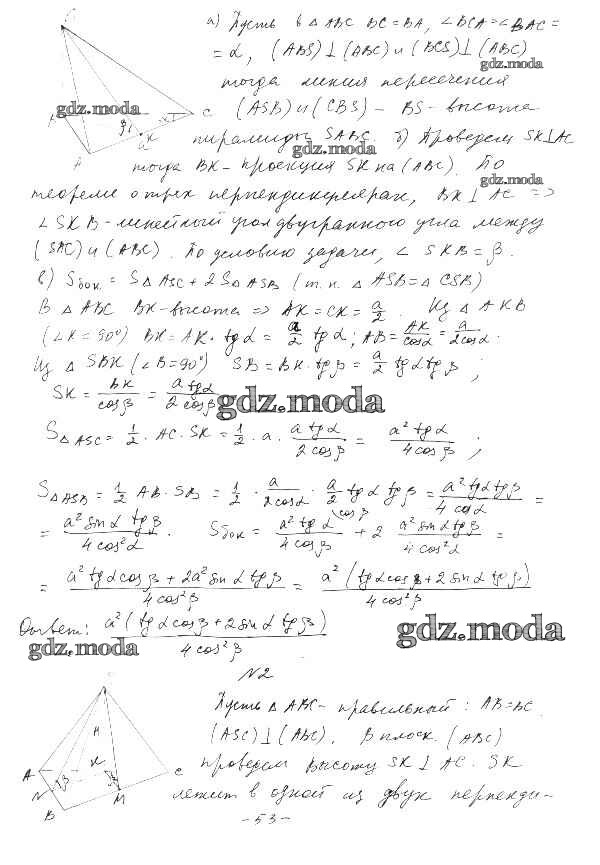 а) Пусть в △ ABC BC = BA, ∠BCA = ∠BAC =
= α, (ABS) ⊥ (ABC) и (BCS) ⊥ (ABC)
gdz.moda
тогда линия пересечения
gdz.moda
(ASB) и (CBS) – BS – высота
пирамиды SABC. б) Проведем SK ⊥ AC
gdz.moda
тогда BK – проекция SK на (ABC). По
gdz.moda
теореме о трех перпендикулярах, BK ⊥ AC =>
∠SKB – линейный угол двугранного угла между
(SAC) и (ABC). По условию задачи, ∠ SKB = β.
в) Sбок = S△ASC + 2S△ASB (т.к. △ ASB = △ CSB)
В △ ABC BK – высота => AK = CK = a/2. Из △ AKB
(∠K = 90°) BK = AK · tg α = a/2 tg α; AB = AK/cos α = a/2cos α.
Из △ SBK (∠B = 90°) SB = BK · tg β = a/2 tg α tg β;
SK = BK/cos β = a tg α/2 cos β
gdz.moda
S△ASC = 1/2 · AC · SK = 1/2 · a · a tg α/2 cos β = a² tg α/4 cos β;
S△ASB = 1/2 AB · SB = 1/2 · a/2cos α · a/2 tg α tg β = a² tg α tg β/4 cos α =
= a² sin α tg β/4 cos² α. Sбок = a² tg α/4 cos β \cos β + 2 a² sin α tg β/4 cos² α =
= a² tg α cos β + 2a² sin α tg β/4 cos² β = a² (tg α cos β + 2 sin α tg β)/4 cos² β
Ответ: a² (tg α cos β + 2 sin α tg β)/4 cos² β
gdz.moda
gdz.moda
N2
Пусть △ ABC – правильный: AB = BC
(ASC) ⊥ (ABC). В плоск. (ABC)
проведем высоту SK ⊥ AC. SK
лежит в одной из двух перпенди-
A
K
C
N
M
B
H
- 53 -